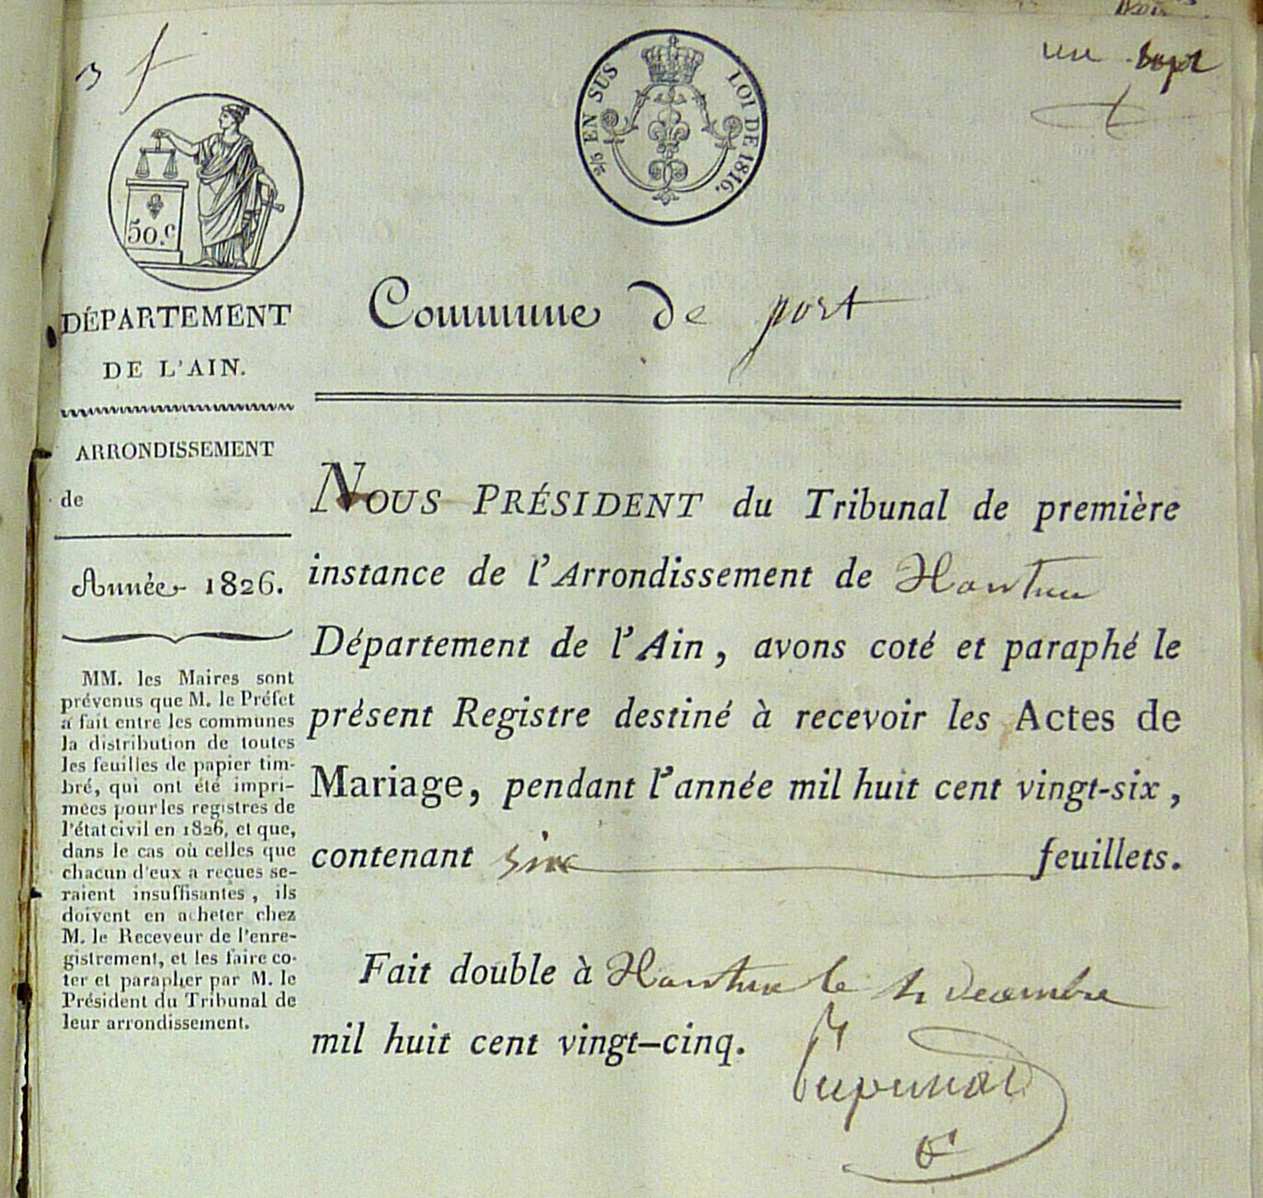 3 f
un
2/6 EN SUS
LOI DE 1816.
50.c
DÉPARTEMENT
DE L'AIN.
ARRONDISSEMENT
de
Année 1826.
MM. les Maires sont
prévenus que M. le Préfet
a fait entre les communes
la distribution de toutes
les feuilles de papier tim-
bré, qui ont été impri-
mées pour les registres de
l'état civil en 1826, et que,
dans le cas où celles que
chacun d'eux a reçues se-
raient insuffisantes, ils
doivent en acheter chez
M. le Receveur de l'enre-
gistrement, et les faire co-
ter et parapher par M. le
Président du Tribunal de
leur arrondissement.
Commune De port
NOUS PRÉSIDENT du Tribunal de première
instance de l'Arrondissement de Nantua
Département de l'Ain, avons coté et paraphé le
présent Registre destiné à recevoir les Actes de
Mariage, pendant l'année mil huit cent vingt-six,
contenant six feuillets.
Fait double à Nantua le decembre
mil huit cent vingt-cinq.